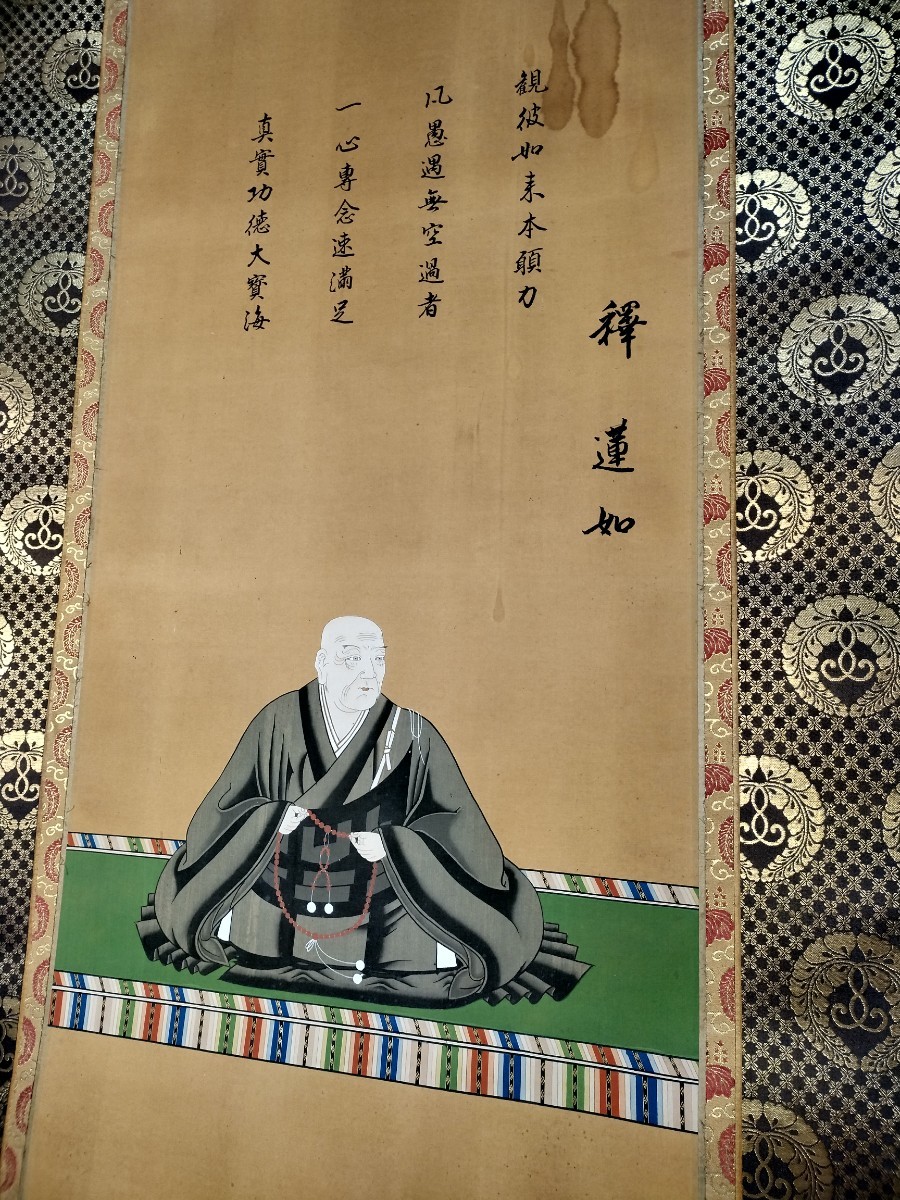 釋蓮如
觀彼如来本願力
凡愚遇無空過者
一心專念速満足
真實功徳大寳海